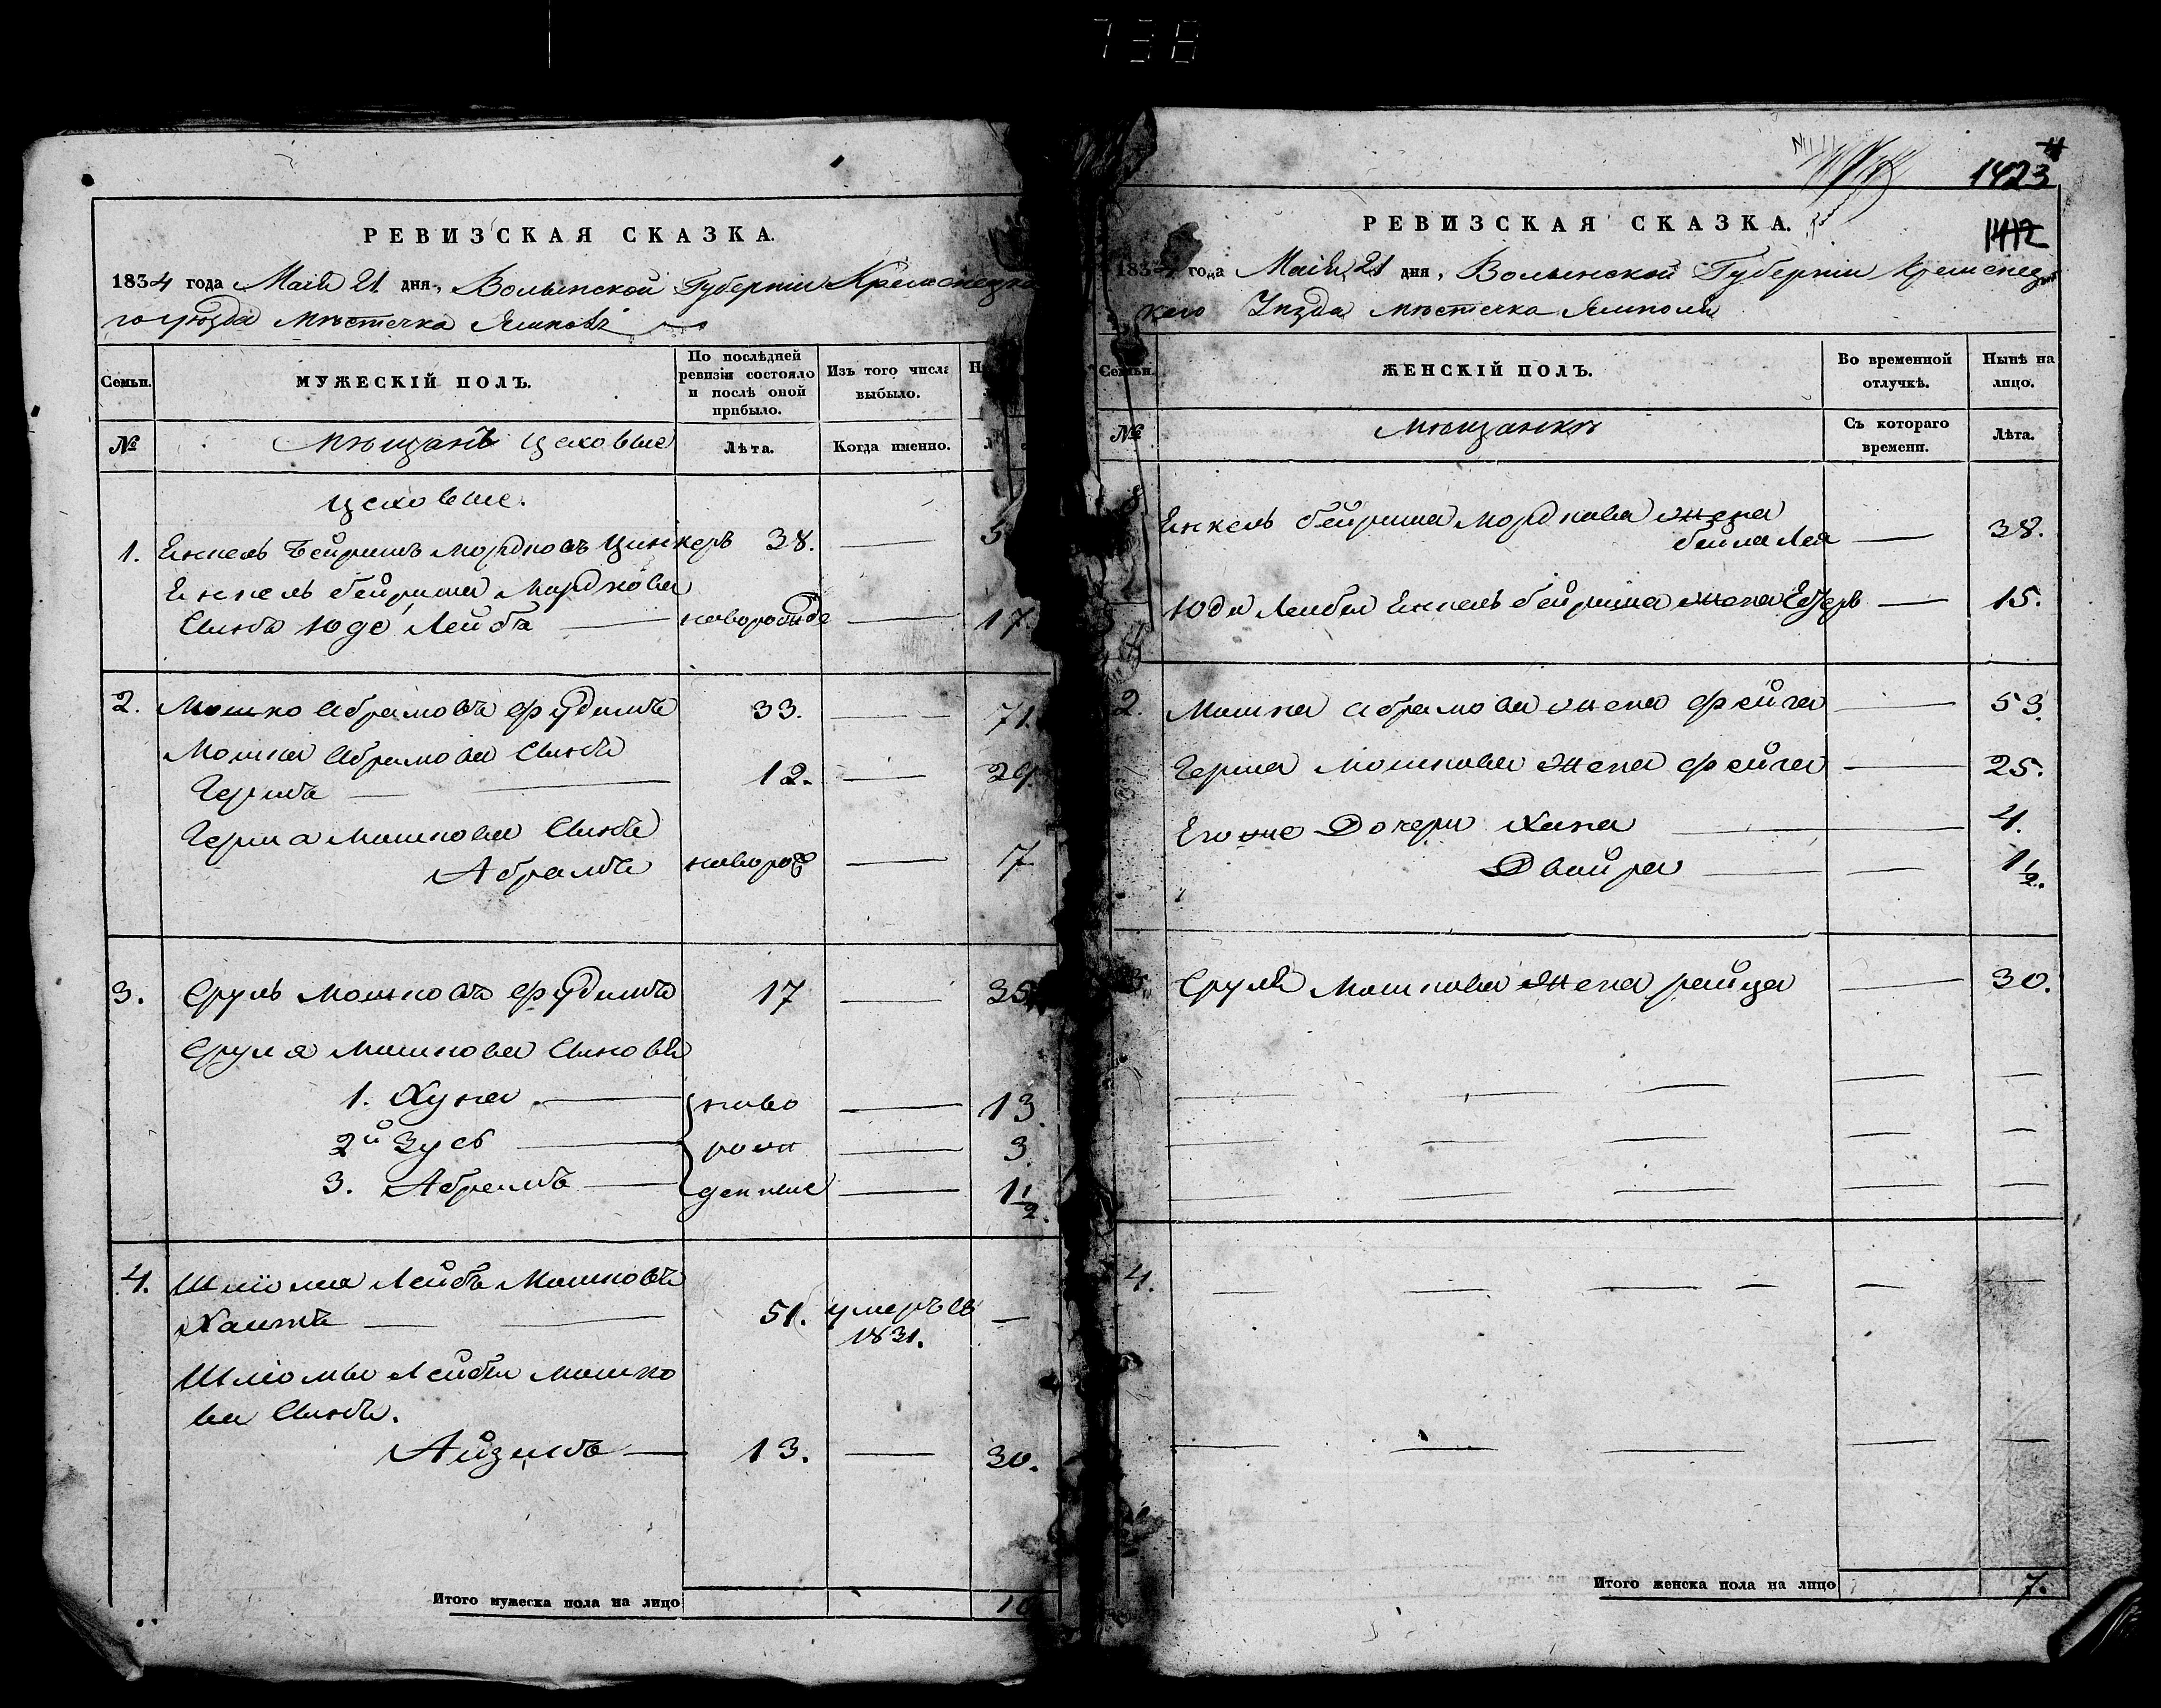 738
РЕВИЗСКАЯ СКАЗКА.
1834 года Маія 21 дня, Волынской Губерніи Кременецка
го уѣзда мѣстечка Ямполя
Семьи.
МУЖЕСКІЙ ПОЛЪ.
По послѣдней
ревизіи состояло
и послѣ оной
прибыло.
Изъ того числа
выбыло.
№
Мѣщанъ цеховые
Лѣта.
Когда именно.
цеховые.
1. Енкель Бейришъ Мордковъ Цинкеръ 38. —
Енкель Бейриша Мордкова
Сынъ Юдо Лейба — новорожде — 17.
2. Мошко Абрамовъ Фудимъ 33. — 71.
Мошка Абрамова Сынъ
Гершъ — 12. — 29.
Герша Мошкова Сынъ
Абрамъ новорож — 7
3. Сруль Мошковъ Фудимъ 17 — 35
Сруля Мошкова Сыновья
1. Хуна — ново — 13.
2й Зусь — рож — 3.
3. Абрамъ — денные — 1 1/2.
4. Шліома Лейбъ Мошковъ
Хаимъ — 51. умеръ въ —
1831.
Шліомы Лейбы Мошко
ва Сынъ.
Айзикъ — 13. — 30.
Итого мужеска пола на лицо 10
1423
1412
РЕВИЗСКАЯ СКАЗКА.
1834 года Маія 21 дня, Волынской Губерніи Кременец
каго Уѣзда мѣстечка Ямполя
Семьи.
ЖЕНСКІЙ ПОЛЪ.
Во временной
отлучкѣ.
Нынѣ на
лицо.
№
Мѣщанкъ
Съ котораго
времени.
Лѣта.
Енкель Бейриша Мордкова жена
Бейла Лея — 38.
Юды Лейбы Енкель Бейриша жена Естеръ — 15.
2. Мошка Абрамова жена Фейга — 53.
Герша Мошкова жена Фейга — 25.
Его же Дочери Хана — 4.
Двойра — 1 1/2.
3. Сруля Мошкова жена Рейца — 30.
4.
Итого женска пола на лицо 7.